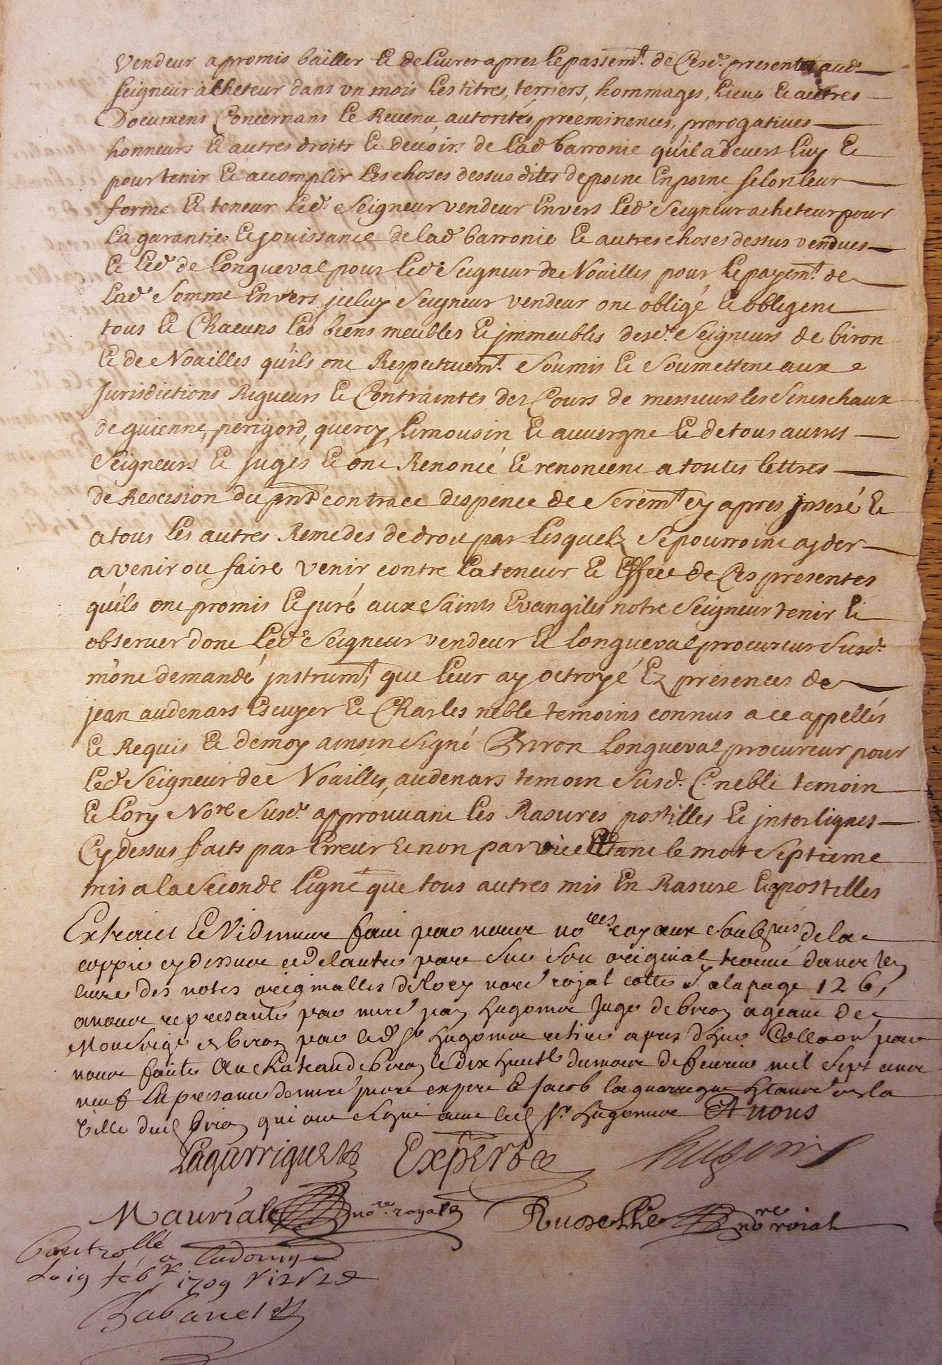 Vendeur a promis bailler Et delivrer apres le passem.t de Cesd. presentes aud.
Seigneur acheteur dans un mois Les titres, terriers, hommages, Lieus Et autres
Documens Concernans Le Revenu autorités, preeminences, prerogatives
honneurs Et autres droits Et devoirs de Lad barronie qu'il a devers Luy Et
pour tenir Et accomplir Les choses dessus dites de point En point selon leur
forme Et teneur Led. Seigneur vendeur Envers Led. Seigneur acheteur pour
La garantie Et jouissance de lad barronie Et autres choses dessus vendues
Et Led. de Longueval pour Led. Seigneur de Noailles pour Le payem.t de
Lad. Somme Envers jceluy Seigneur vendeur ont obligé Et obligent
tous Et Chacuns Les biens meubles Et jmmeubles desd. Seigneurs de biron
Et de Noailles qu'ils ont Respectivem.t Soumis Et Soumettent aux
Jurisdictions Rigueurs Et Contraintes des Cours de messieurs les Sineschaux
de guienne, perigord, quercy, Limousin Et auvergne Et de tous autres
Seigneurs Et juges Et ont Renoncé Et renoncent a toutes lettres
de Rescision du pnt contract dispence de Serem.t cy apres jnseré Et
a tous Les autres Remedes de droit par Lesquelz Se pourroint ayder
a venir ou faire venir contre La teneur Et Effect de Ces presentes
qu'ils ont promis Et juré aux Saints Evangiles notre Seigneur tenir Et
observer dont Led. Seigneur vendeur Et Longueval procureur Susd.
m'ont demandé jnstrum.t que leur ay octroyé Ez presences de
jean audenars Escuyer Et Charles nible temoins connus a ce appellés
Et Requis Et de moy ainsin Signé Biron Longueval procureur pour
Led. Seigneur de Noailles, audenars temoin Susd. C. nebli temoin
Et Lory No.re Susd. approuvant Les Rasures postilles Et jnterlignes
Cy dessus faits par Erreur Et non par vice Estant le mot Septieme
mis a la Seconde Ligne que tous autres mis En Rasure Et postilles
Extraict Et Vidimus faict par nous no.res royaux Soubz.nes de la
coppie cy dessus et de lautre part Sur Son original trouvé dans le
livre des nottes originalles de Lory no.re roial cotte a la page 126,
a nous represanté par
biron
nous faite Au Chateau de biron le dix huict du mois de feuvrier mil Sept cens
neuf En presance de
ville dud biron qui ont signé avec led S.r Et nous
Lagarrigue Experte
Mauriale no.re royal no.re roial
Controllé a
Le 19 feb.r 1709
Chabanel